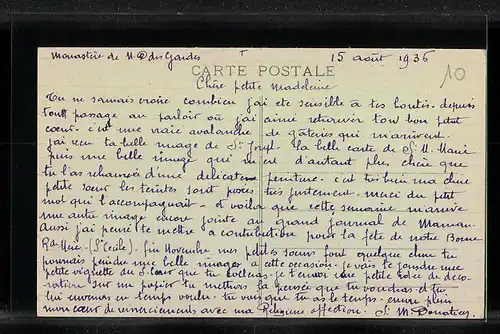 Monastère de N. D des Gardes
15 août 1936
10
CARTE POSTALE
Chère petite Madeleine
Tu ne saurais croire combien j'ai été sensible à tes bontés. depuis
ton passage au parloir où j'ai aimé retrouver tout bon petit
cœur. c'est une vraie avalanche de gâteries qui m'arrivent.
j'ai reçu ta belle image de St Joseph. la belle carte de Ste M. Marie
puis une belle image qui m'est d'autant plus chère que
tu l'as rehaussée d'une délicate peinture. c'est très bien ma chère
petite sœur les teintes sont posées très justement. merci du petit
mot qui l'accompagnait. et voilà que cette semaine m'arrive
une autre image encore jointe au grand journal de Maman.
Aussi j'ai pensé te mettre à contribution pour la fête de notre Bonne
Rde Mère. (Ste Cécile). fin Novembre mes petites sœurs font quelque chose tu
pourrais peindre une belle image à cette occasion. je vais te joindre une
petite vignette du S. Cœur que tu colleras. je t'envoie une petite idée de déco-
ration sur un papier tu mettras la pensée que tu voudras et tu
lui enverras en temps voulu. tu vois que tu as le temps. encore plein
mon cœur de remerciements avec ma Religieuse affection. Sr M. Donatien.